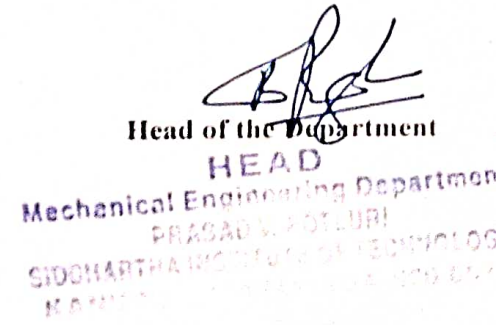 Head of the Department
HEAD
Mechanical Engineering Departmen
PRASAD V. POTLURI
SIDDHARTHA INSTITUTE OF TECHNOLOG